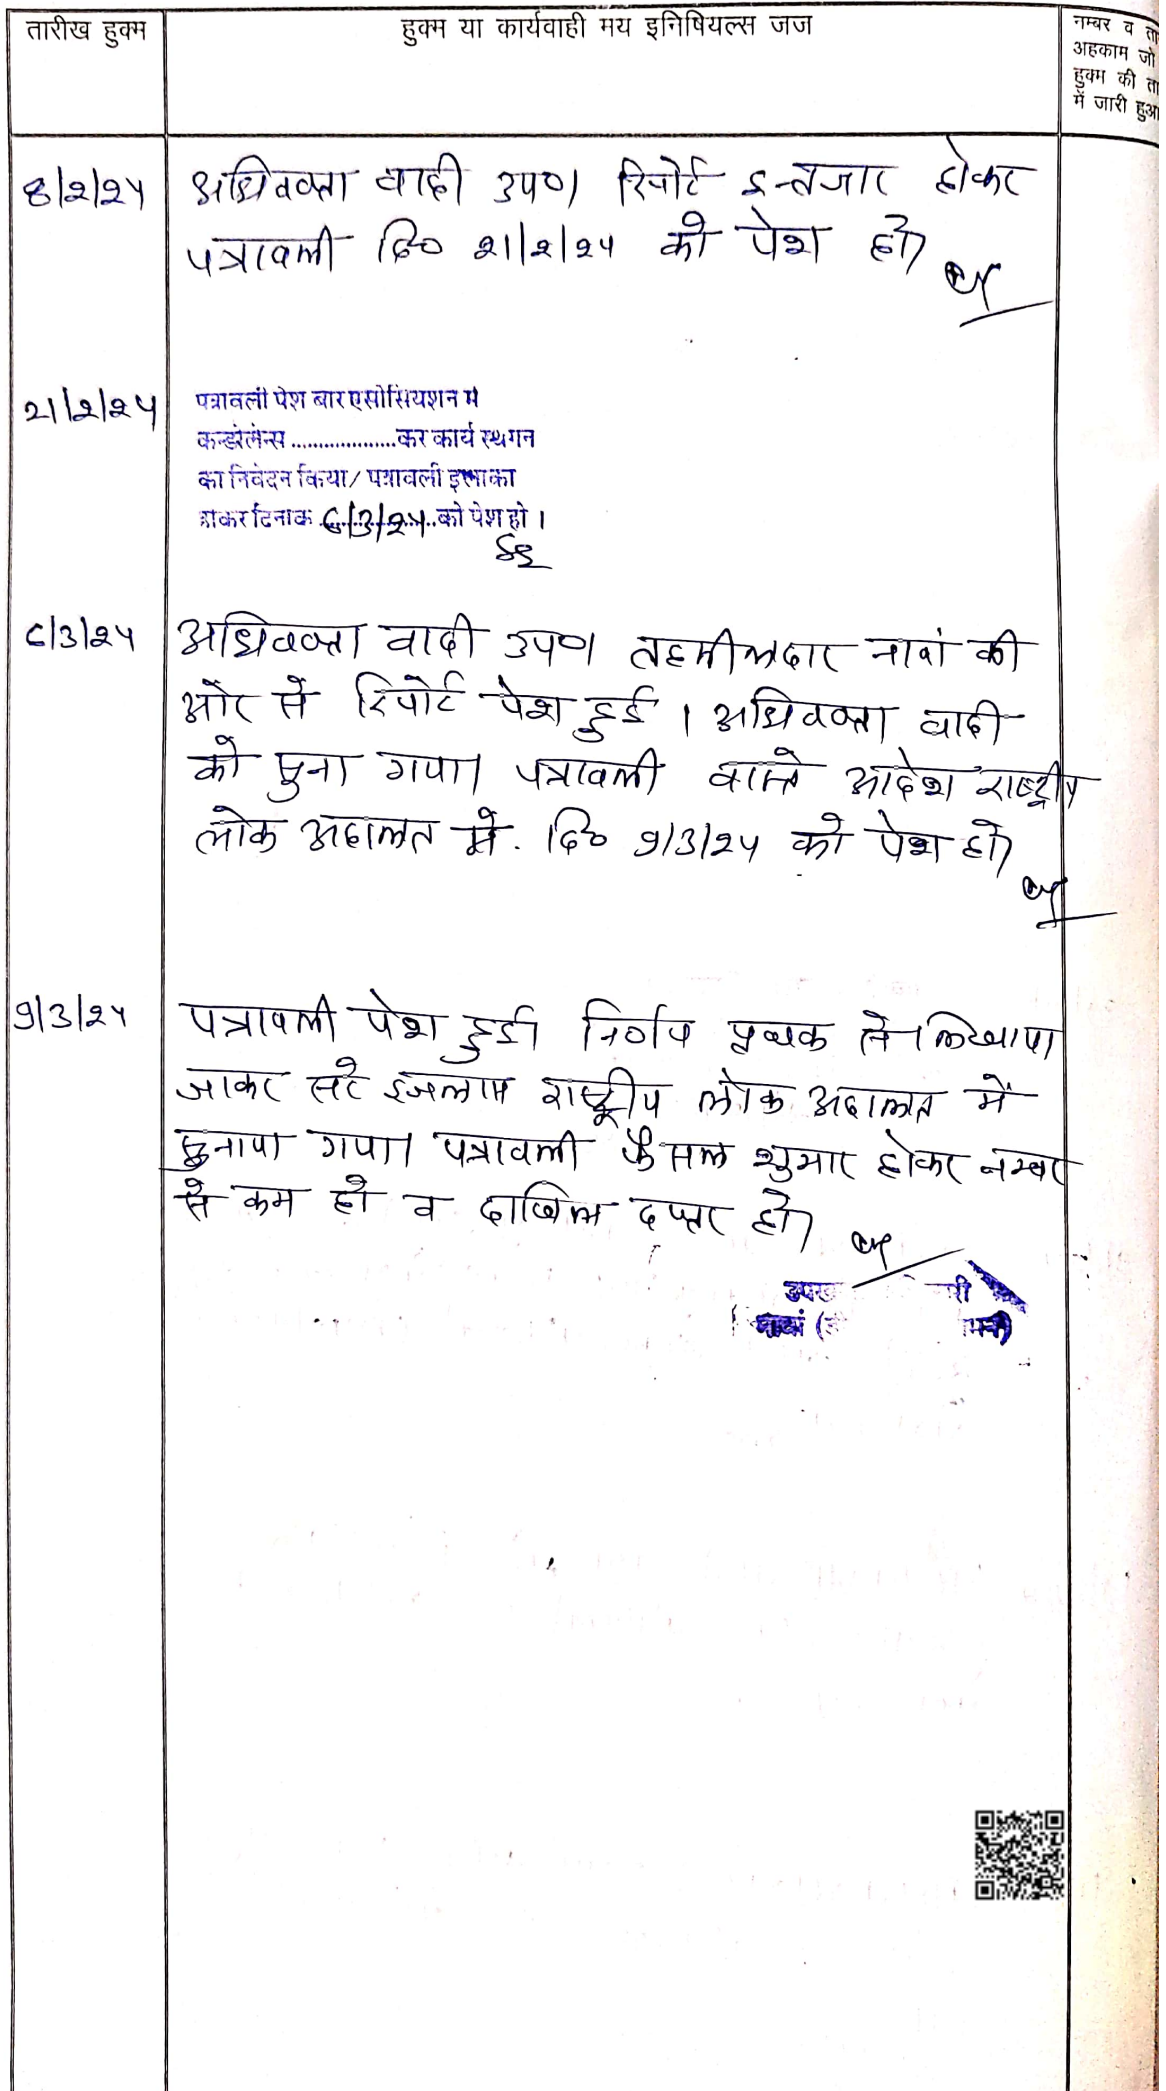 तारीख हुक्म
हुक्म या कार्यवाही मय इनिषियल्स जज
नम्बर व ता
अहकाम जो
हुक्म की ता
में जारी हुआ
8/2/24
अधिवक्ता वादी उप०। रिपोर्ट इन्तजार होकर
पत्रावली दि० 21/2/24 को पेश हो।
21/2/24
पत्रावली पेश बार एसोसियशन में
कन्डोलेन्स ..................कर कार्य स्थगन
का निवेदन किया/ पत्रावली इलाका
होकर दिनांक 6/3/24 को पेश हो ।
6/3/24
अधिवक्ता वादी उप०। तहसीलदार नावां की
ओर से रिपोर्ट पेश हुई । अधिवक्ता वादी
को सुना गया। पत्रावली वास्ते आदेश राष्ट्रीय
लोक अदालत में. दि० 9/3/24 को पेश हो।
9/3/24
पत्रावली पेश हुई। निर्णय पृथक से लिखाया
जाकर सरे इजलास राष्ट्रीय लोक अदालत में
सुनाया गया। पत्रावली फैसल शुमार होकर नम्बर
से कम हो व दाखिल दफ्तर हो।
नावां